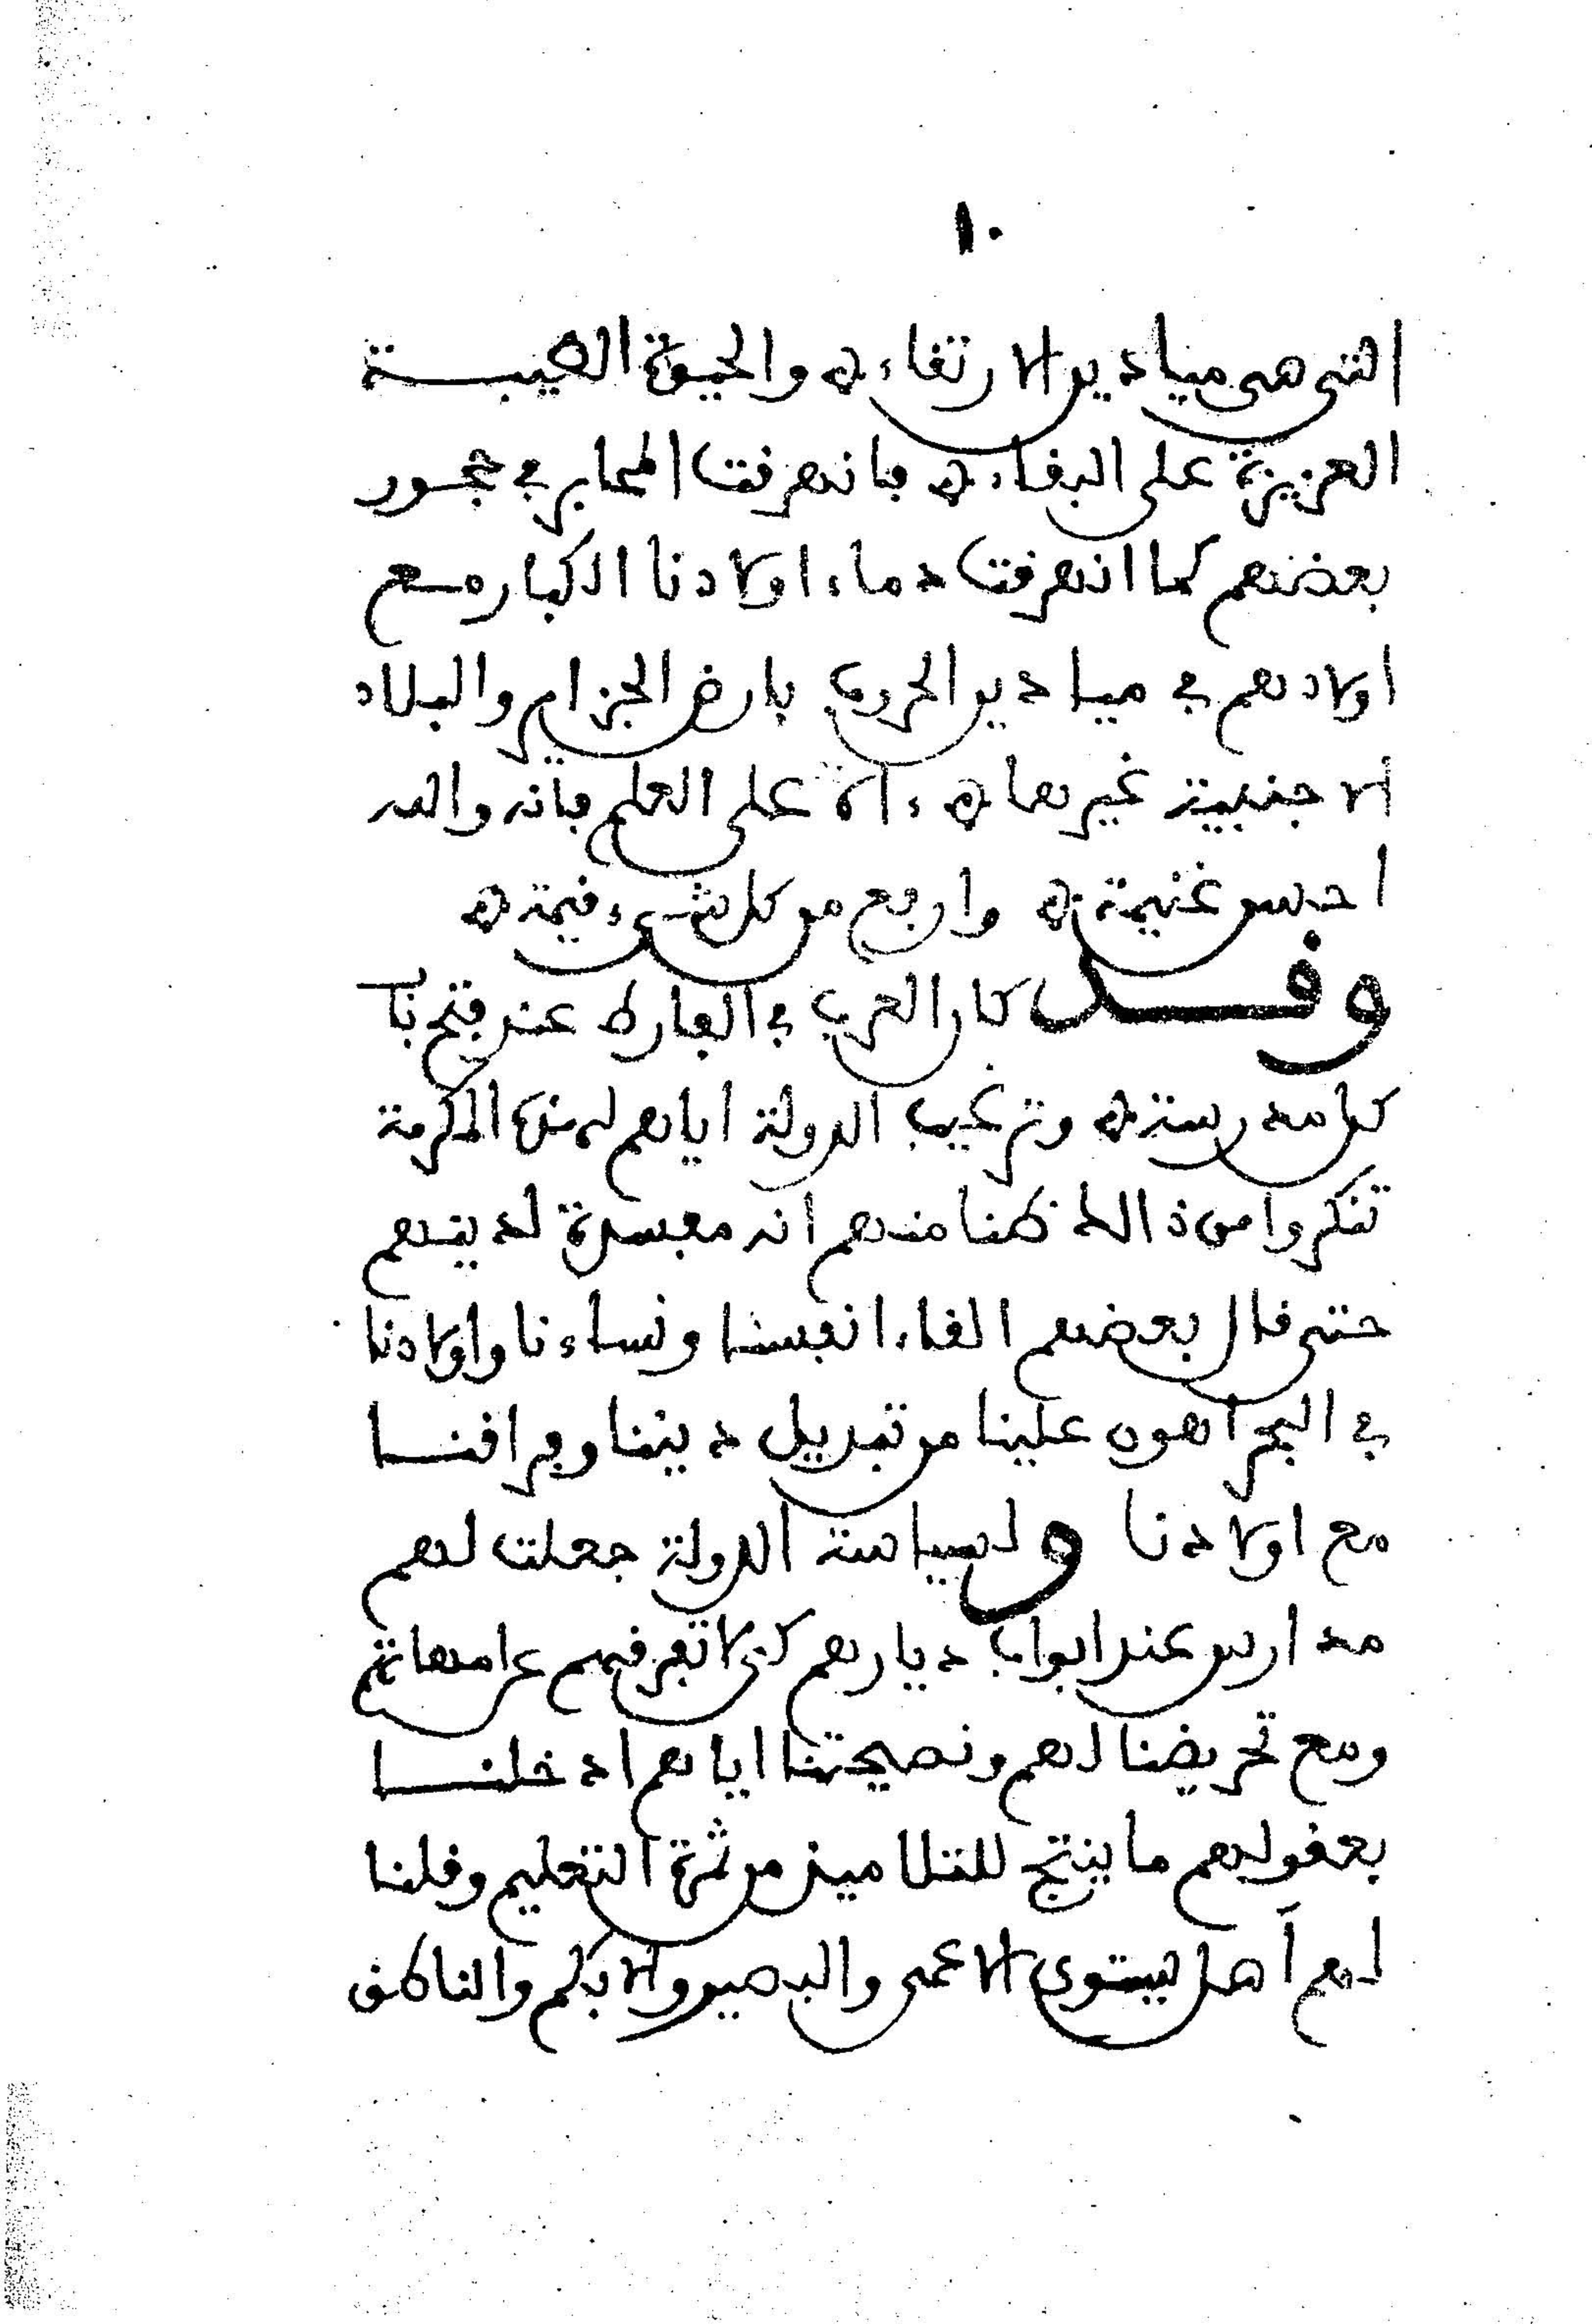 ١٠
التي هي ميادين الارتقاء ۞ والحيوة الطيبة
العزيزة على البقاء ۞ فانهرقت المحابر في حجور
بعضهم كما انهرقت دماء اولادنا الكبار مع
اولادهم في ميادين الحروب بارض الجزاير والبلاد
الاجنبية غيرها ۞ ءالا على العلم فانه والله
احسن غنيمة ۞ وارفع من كل شيء قيمة ۞
وقد كان العرب في الفارط عند فتح باب
كل مدرسة ۞ وترغيب الدولة اياهم لهذه المكرمة
تنكروا من ذالك ظنا منهم انه مفسدة لدينهم
حتى قال بعضهم القاء انفسنا ونساءنا واولادنا
في البحر اهون علينا من تبديل ديننا وفراقنا
مع اولادنا ولسياسة الدولة جعلت لهم
مدارس عند ابواب ديارهم كي لا تفرقهم عن امهاتهم
ومع تحريضنا لهم ونصيحتنا اياهم ادخلنا
بعقولهم ما ينتج للتلاميذ من ثمرة التعليم وقلنا
لهم أهل يستوي الاعمى والبصير والابكم والناطق